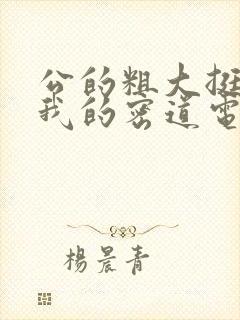 公的粗大挺
我的密道電
楊晨青